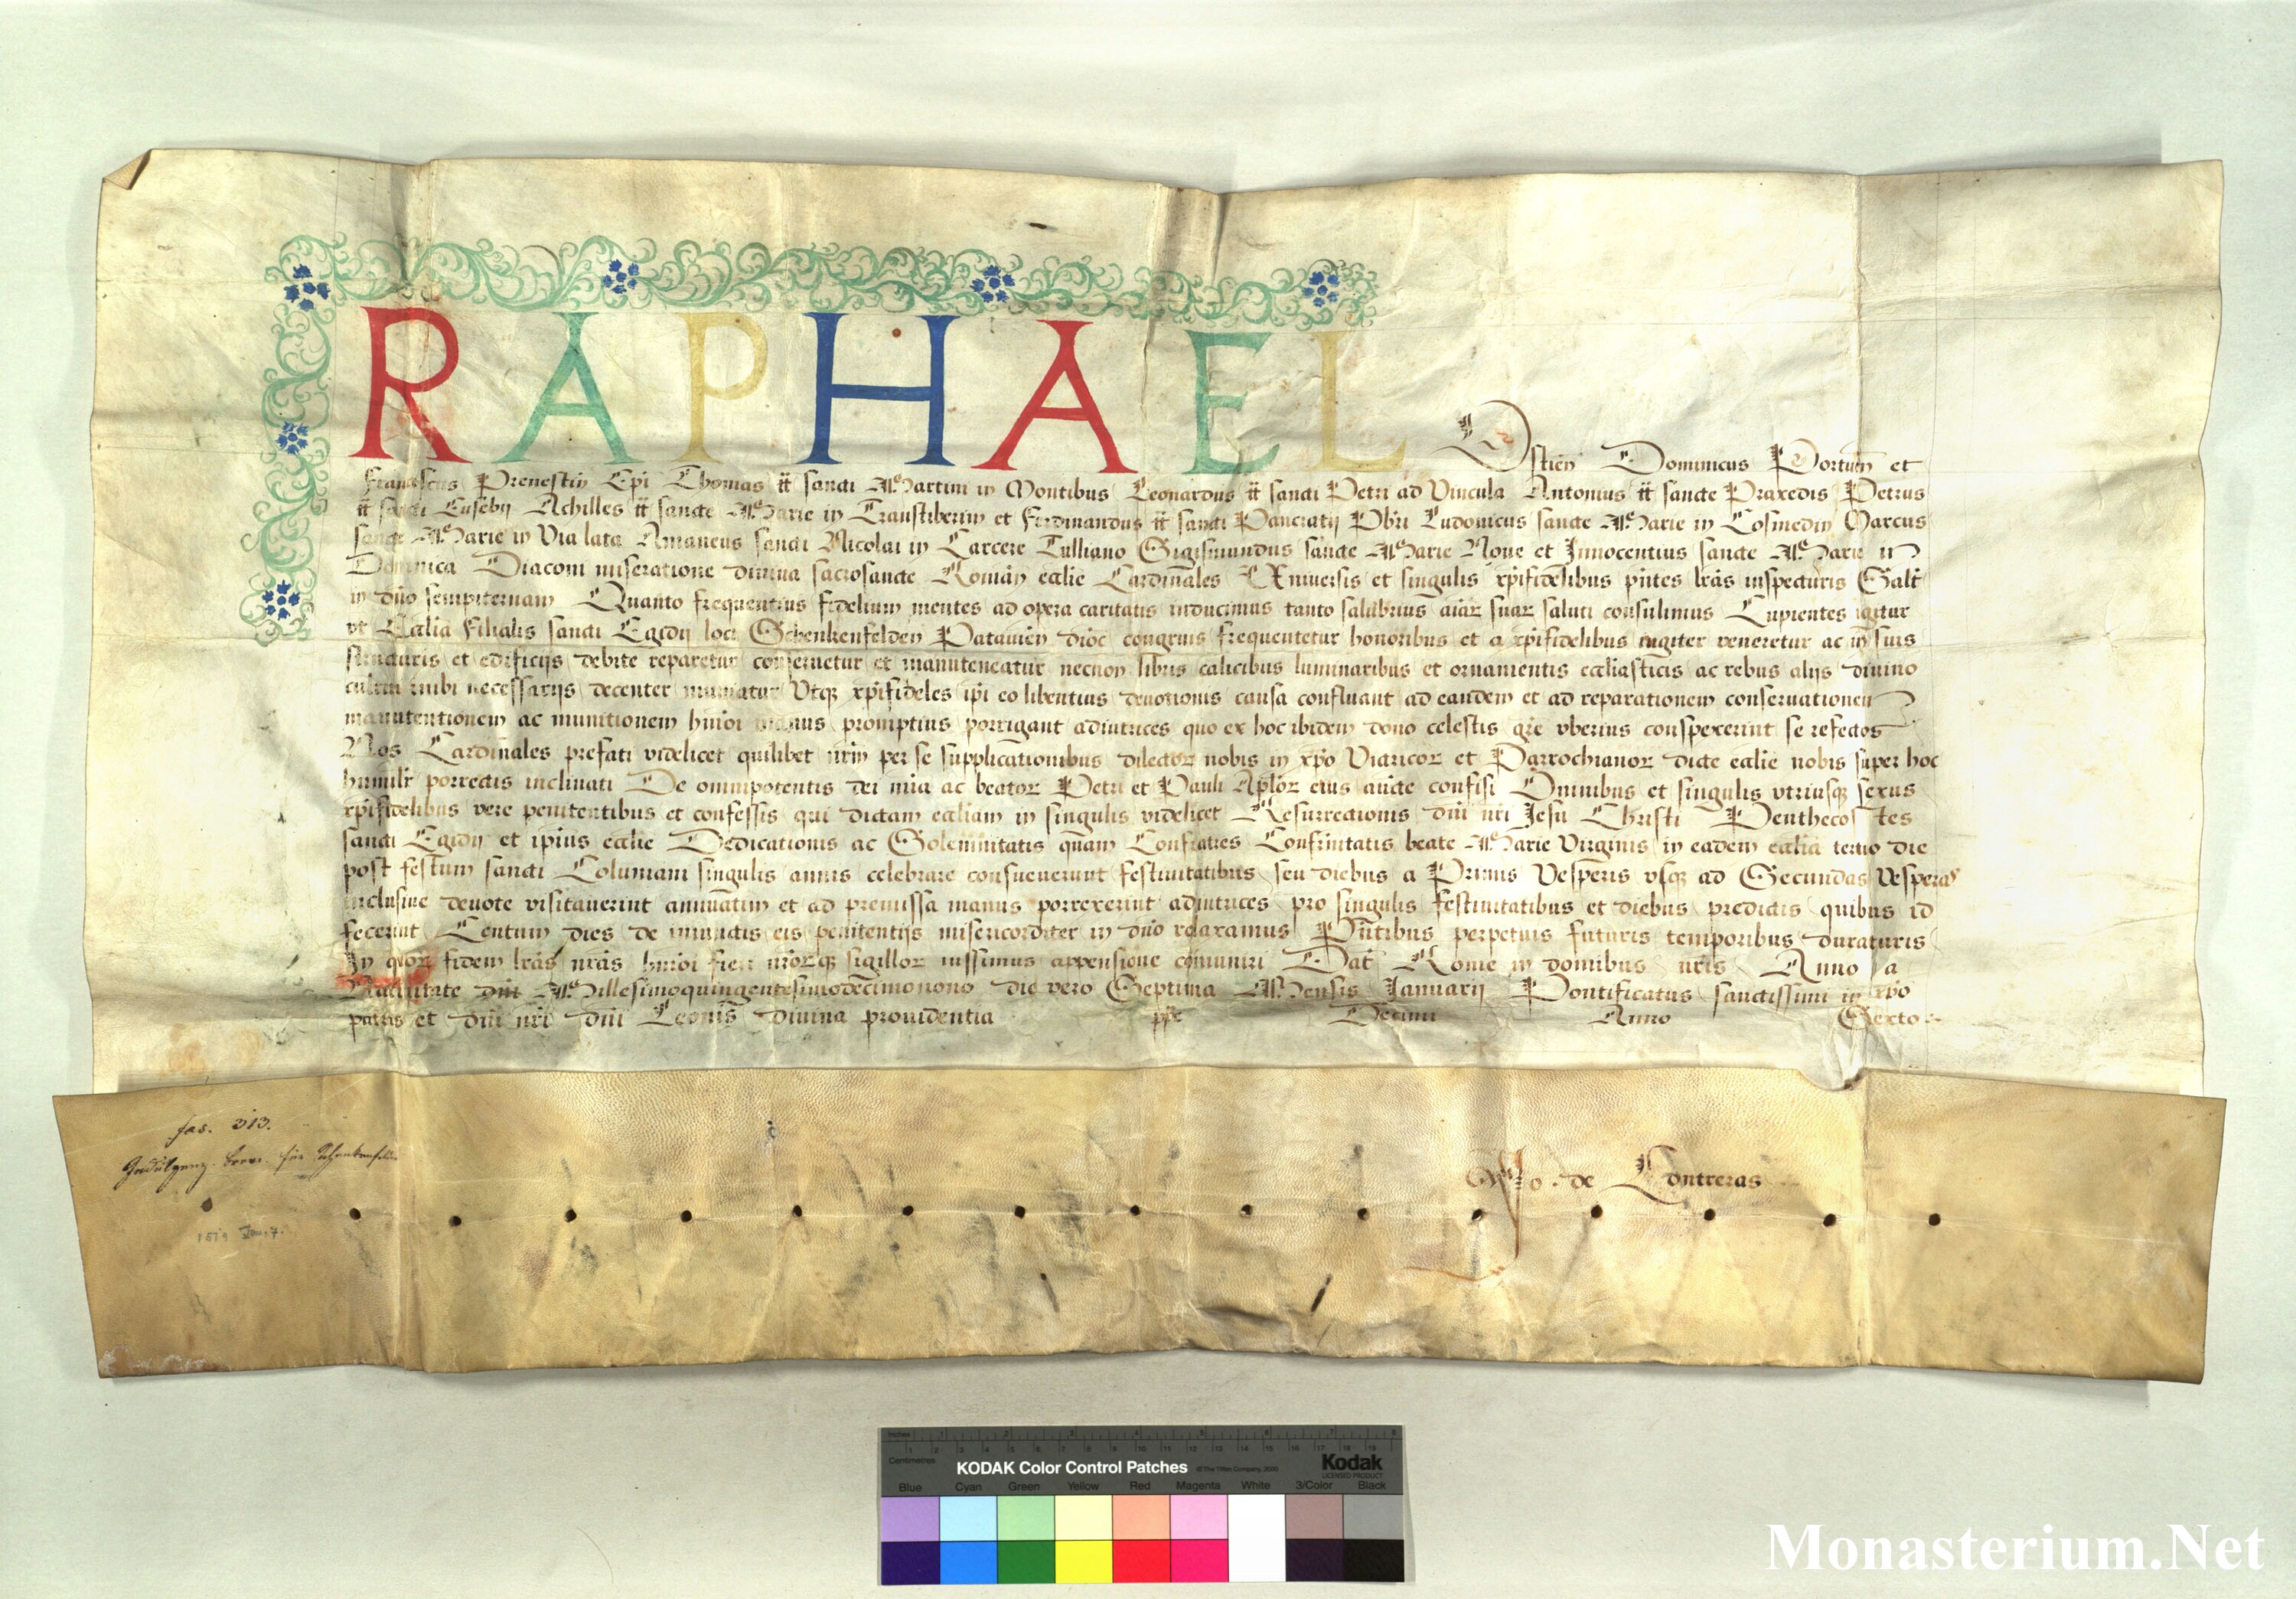 RAPHAEL Ostien Dominicus Portuen et
Franciscus Prenestin Epi Thomas tt sancti Martini in Montibus Leonardus tt sancti Petri ad Vincula Antonius tt sancte Praxedis Petrus
tt sancti Eusebij Achilles tt sancte Marie in Transtiberim et Ferdinandus tt sancti Pancratij Pbri Ludovicus sancte Marie in Cosmedin Marcus
sancte Marie in Via lata Amaneus sancti Nicolai in Carcere Tulliano Sigismundus sancte Marie Noue et Innocentius sancte Marie in
Dominica Diaconi miseratione diuina sacrosancte Roman ecclie Cardinales Vniuersis et singulis xpifidelibus pntes lras inspecturis Salt
in dno sempiternam Quanto frequentius fidelium mentes ad opera caritatis inducimus tanto salubrius aiar suar saluti consulimus Cupientes igitur
vt Ecclia Filialis sancti Egidij loci Schenkenfelden Patauien dioc congruis frequentetur honoribus et a xpifidelibus iugiter veneretur ac in suis
structuris et edificijs debite reparetur conseruetur et manuteneatur necnon libris calicibus luminaribus et ornamentis eccliasticis ac rebus alijs diuino
cultui inibi necessarijs decenter muniatur Vtqz xpifideles ipi eo libentius deuotionis causa confluant ad eandem et ad reparationem conseruationem
manutentionem ac munitionem hmoi manus promptius porrigant adiutrices quo ex hoc ibidem dono celestis gre vberius conspexerint se refectos
Nos Cardinales prefati videlicet quilibet nrm per se supplicationibus dilector nobis in xpo Vitricor et Parrochianor dicte ecclie nobis super hoc
humilr porrectis inclinati De omnipotentis dei mia ac beator Petri et Pauli Aplor eius aucte confisi Omnibus et singulis vtriusqz sexus
xpifidelibus vere penitentibus et confessis qui dictam eccliam in singulis videlicet Resurrectionis dni nri Jesu Christi Penthecostes
sancti Egidij et ipius ecclie Dedicationis ac Solennitatis quam Confratres Confrnitatis beate Marie Virginis in eadem ecclia tertio die
post festum sancti Colomani singulis annis celebrare consueuerunt festiuitatibus seu diebus a Primis Vesperis vsqz ad Secundas Vesperas
inclusiue deuote visitauerint annuatim et ad premissa manus porrexerint adiutrices pro singulis festiuitatibus et diebus predictis quibus id
fecerint Centum dies de iniunctis eis penitentijs misericorditer in dno relaxamus Pntibus perpetuis futuris temporibus duraturis
In quor fidem lras nras hmoi fieri nrorqz sigillor iussimus appensione comuniri Dat Rome in domibus nris Anno a
Natiuitate dni Millesimoquingentesimodecimonono die vero Septima Mensis Januarij Pontificatus sanctissimi in xpo
patris et dni nri dni Leonis diuina prouidentia ppe Decimi Anno Sexto
fas. 313.
Jo. de Contreras
1519 Jan. 7.
Inches
Centimetres
KODAK Color Control Patches
© The Tiffen Company, 2000
Kodak
LICENSED PRODUCT
Blue Cyan Green Yellow Red Magenta White 3/Color Black
Monasterium.Net